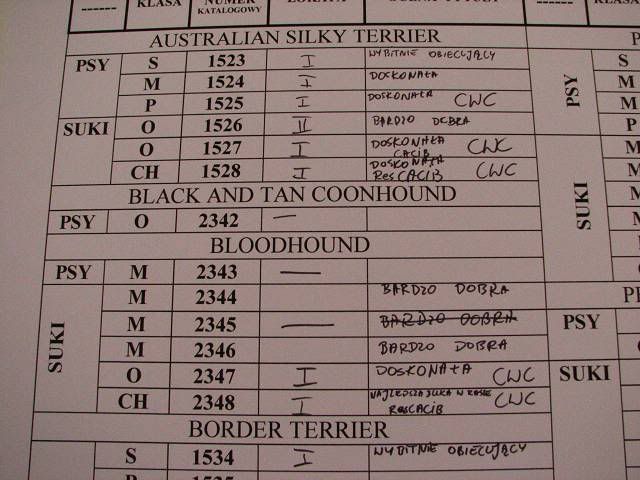 ------ KLASA NUMER KATALOGOWY LOKATA KLASA
AUSTRALIAN SILKY TERRIER
PSY S 1523 I WYBITNIE OBIECUJĄCY
M 1524 I DOSKONAŁA
P 1525 I DOSKONAŁA CWC
SUKI O 1526 II BARDZO DOBRA
O 1527 I DOSKONAŁA CACIB CWC
CH 1528 I DOSKONAŁA ResCACIB CWC
BLACK AND TAN COONHOUND
PSY O 2342 —
BLOODHOUND
PSY M 2343 —
SUKI M 2344 BARDZO DOBRA
M 2345 — BARDZO DOBRA
M 2346 BARDZO DOBRA
O 2347 I DOSKONAŁA CWC
CH 2348 I NAJLEPSZA SUKA W RASIE ResCACIB CWC
BORDER TERRIER
S 1534 I WYBITNIE OBIECUJĄCY
P
PSY S
M
M
P
SUKI M
M
PSY
SUKI